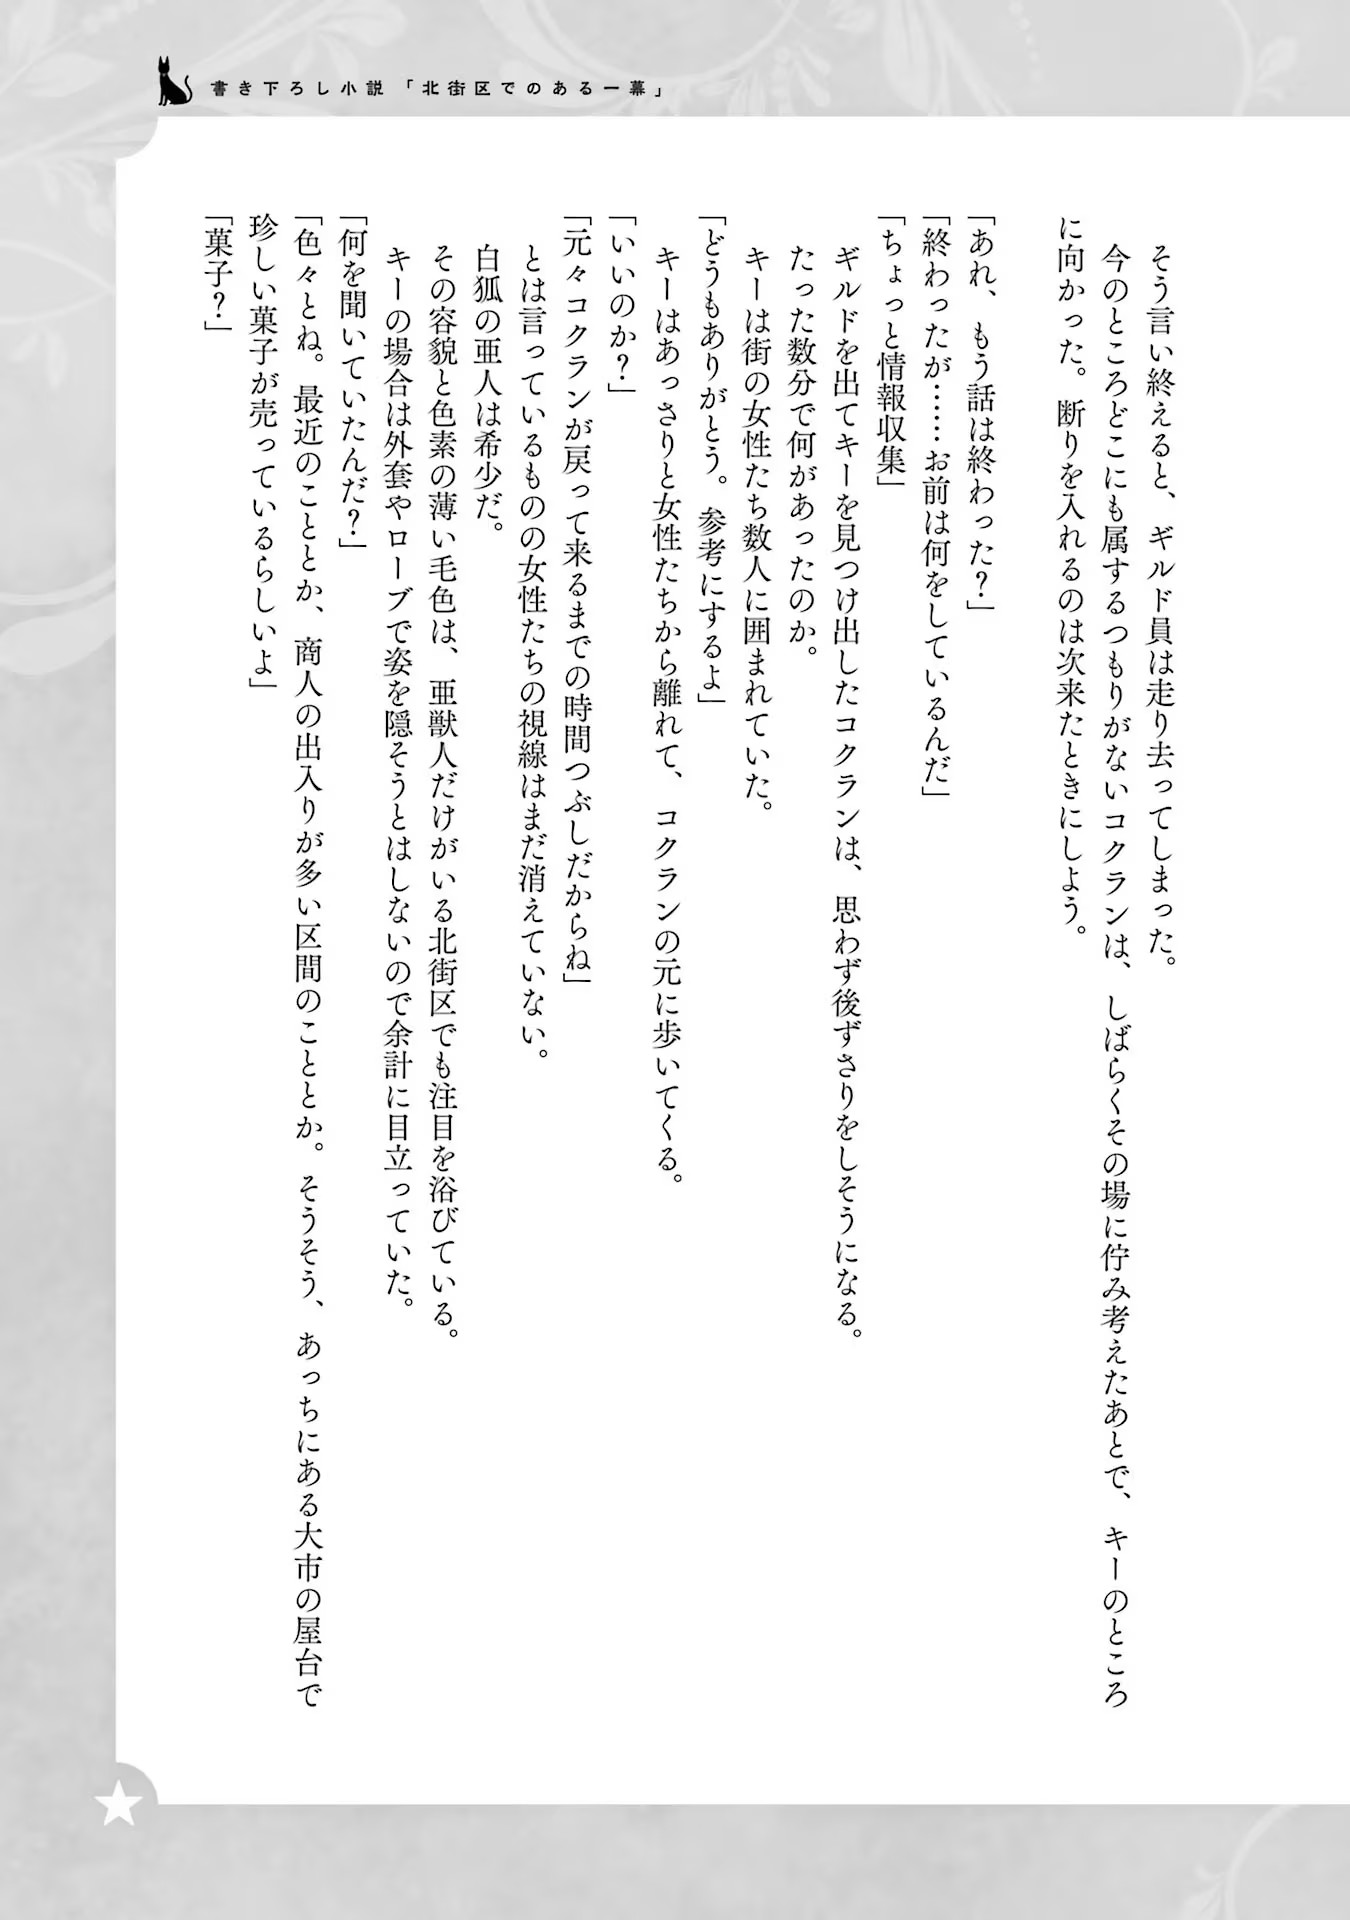 書き下ろし小説「北街区でのある一幕」
そう言い終えると、ギルド員は走り去ってしまった。
今のところどこにも属するつもりがないコクランは、しばらくその場に佇み考えたあとで、キーのところ
に向かった。断りを入れるのは次来たときにしよう。
「あれ、もう話は終わった？」
「終わったが……お前は何をしているんだ」
「ちょっと情報収集」
ギルドを出てキーを見つけ出したコクランは、思わず後ずさりをしそうになる。
たった数分で何があったのか。
キーは街の女性たち数人に囲まれていた。
「どうもありがとう。参考にするよ」
キーはあっさりと女性たちから離れて、コクランの元に歩いてくる。
「いいのか？」
「元々コクランが戻って来るまでの時間つぶしだからね」
とは言っているものの女性たちの視線はまだ消えていない。
白狐の亜人は希少だ。
その容貌と色素の薄い毛色は、亜獣人だけがいる北街区でも注目を浴びている。
キーの場合は外套やローブで姿を隠そうとはしないので余計に目立っていた。
「何を聞いていたんだ？」
「色々とね。最近のこととか、商人の出入りが多い区間のこととか。そうそう、あっちにある大市の屋台で
珍しい菓子が売っているらしいよ」
「菓子？」